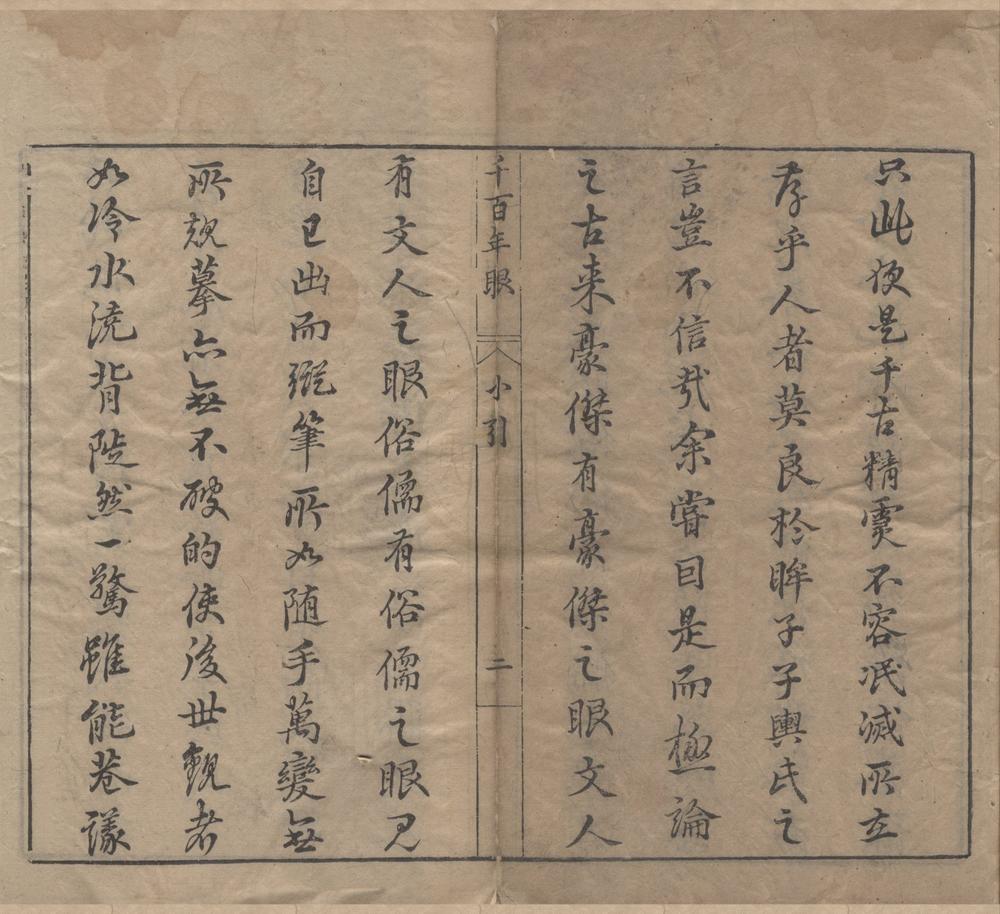 只此便是千古精靈不容泯滅所立
存乎人者莫良於眸子子輿氏之
言豈不信哉余嘗因是而極論
之古来豪傑有豪傑之眼文人
千百年眼 小引 二
有文人之眼俗儒有俗儒之眼見
自己出而縱筆所如随手萬變無
所規摹亦無不破的使後世觀者
如冷水澆背陡然一驚雖能巷議